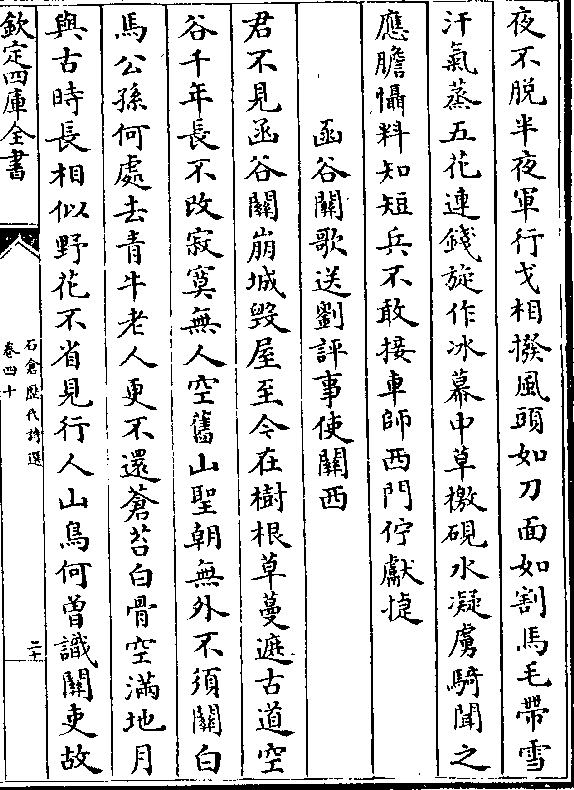 夜不脱半夜軍行戈相撥風頭如刀面如割馬毛帶雪
汗氣蒸五花連錢旋作冰幕中草檄硯水凝虜騎聞之
應膽懾料知短兵不敢接車師西門佇獻捷
函谷關歌送劉評事使關西
君不見函谷關崩城毀屋至今在樹根草蔓遮古道空
谷千年長不改寂寞無人空舊山聖朝無外不須關白
馬公孫何處去青牛老人更不還蒼苔白骨空滿地月
與古時長相似野花不省見行人山鳥何曾識關吏故
欽定四庫全書
石倉歷代詩選
卷四十
二十